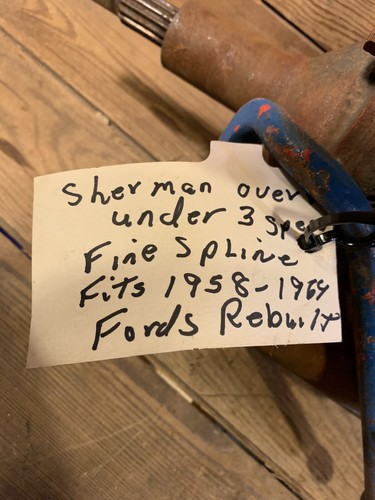 Sherman over
under 3 spe
Fine Spline
Fits 1958-1964
Fords Rebuilt